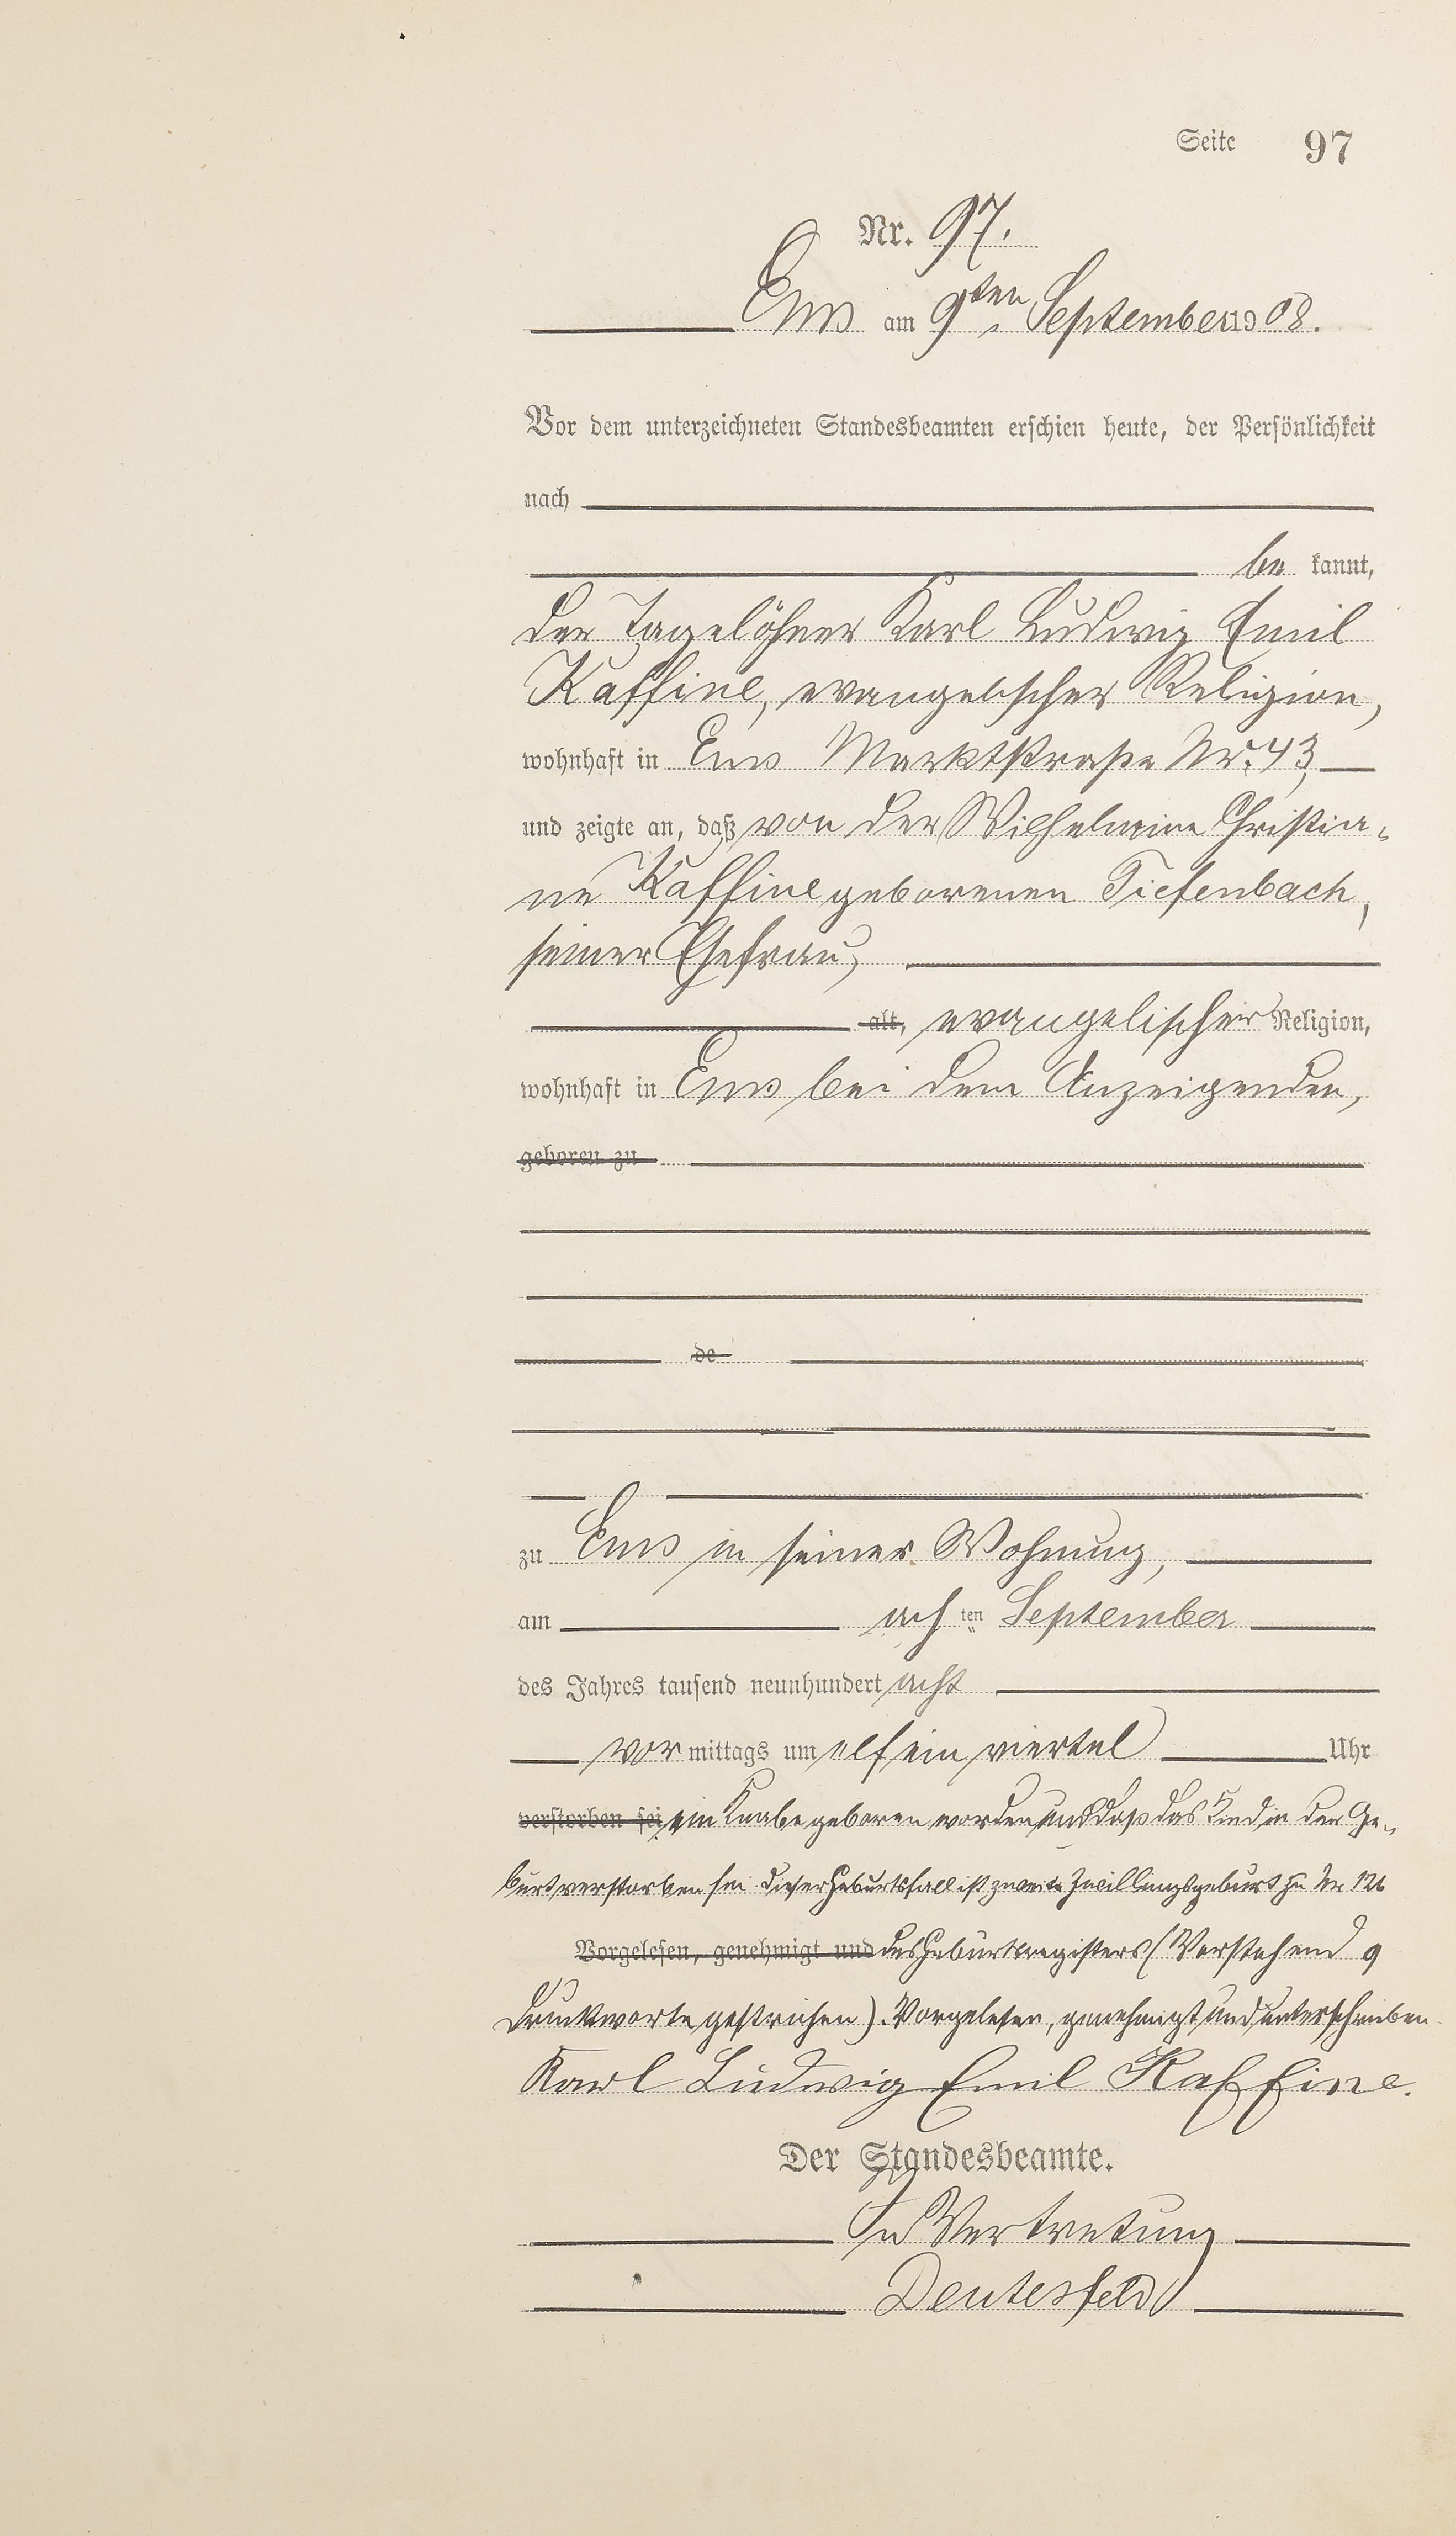 Seite 97
Nr. 97.
Ems am 9ten September 1908.
Vor dem unterzeichneten Standesbeamten erschien heute, der Persönlichkeit
nach
be kannt,
der Tagelöhner Karl Ludwig Emil
Kaffine, evangelischer Religion,
wohnhaft in Ems Marktstraße Nr. 43,
und zeigte an, daß von der Wilhelmine Christia-
ne Kaffine geborenen Tiefenbach,
seiner Ehefrau,
alt, evangelischer Religion,
wohnhaft in Ems bei dem Anzeigenden,
geboren zu
de
zu Ems in seiner Wohnung,
am ach ten September
des Jahres tausend neunhundert acht
vor mittags um elf ein viertel Uhr
verstorben sei ein Knabe geboren worden und daß das Kind in der Ge-
burt verstorben sei. Dieser Geburtsfall ist zweite Zwillingsgeburt zu Nr. 126
Vorgelesen, genehmigt und des Geburtsregisters (Vorstehend 9
Druckworte gestrichen). Vorgelesen, genehmigt und unterschrieben.
Karl Ludwig Emil Kaffine.
Der Standesbeamte.
In Vertretung
Deutesfeld